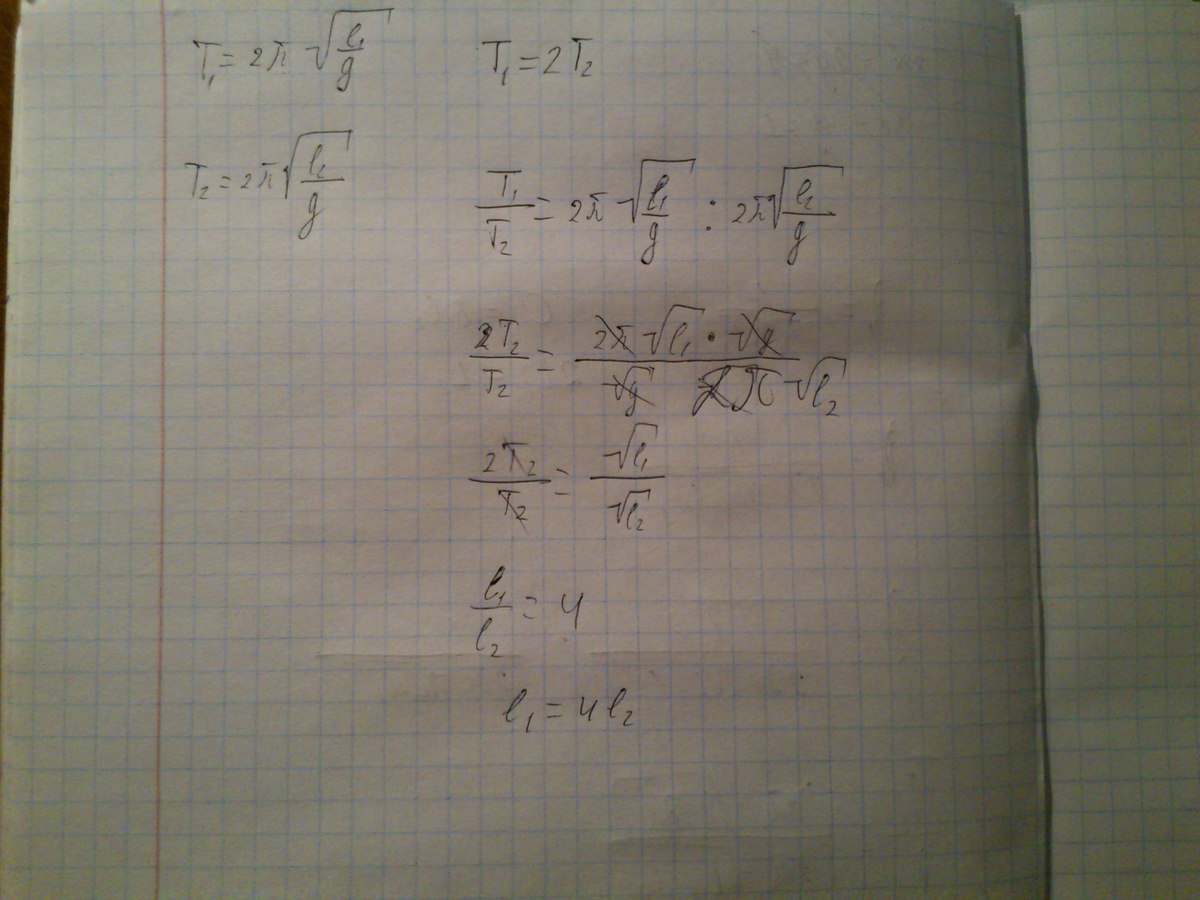 T₁ = 2π √(l₁/g)
T₁ = 2T₂
T₂ = 2π √(l₂/g)
T₁/T₂ = 2π √(l₁/g) : 2π √(l₂/g)
2T₂/T₂ = (2π √l₁ · √g)/(√g 2π √l₂)
2T₂/T₂ = √l₁/√l₂
l₁/l₂ = 4
l₁ = 4l₂